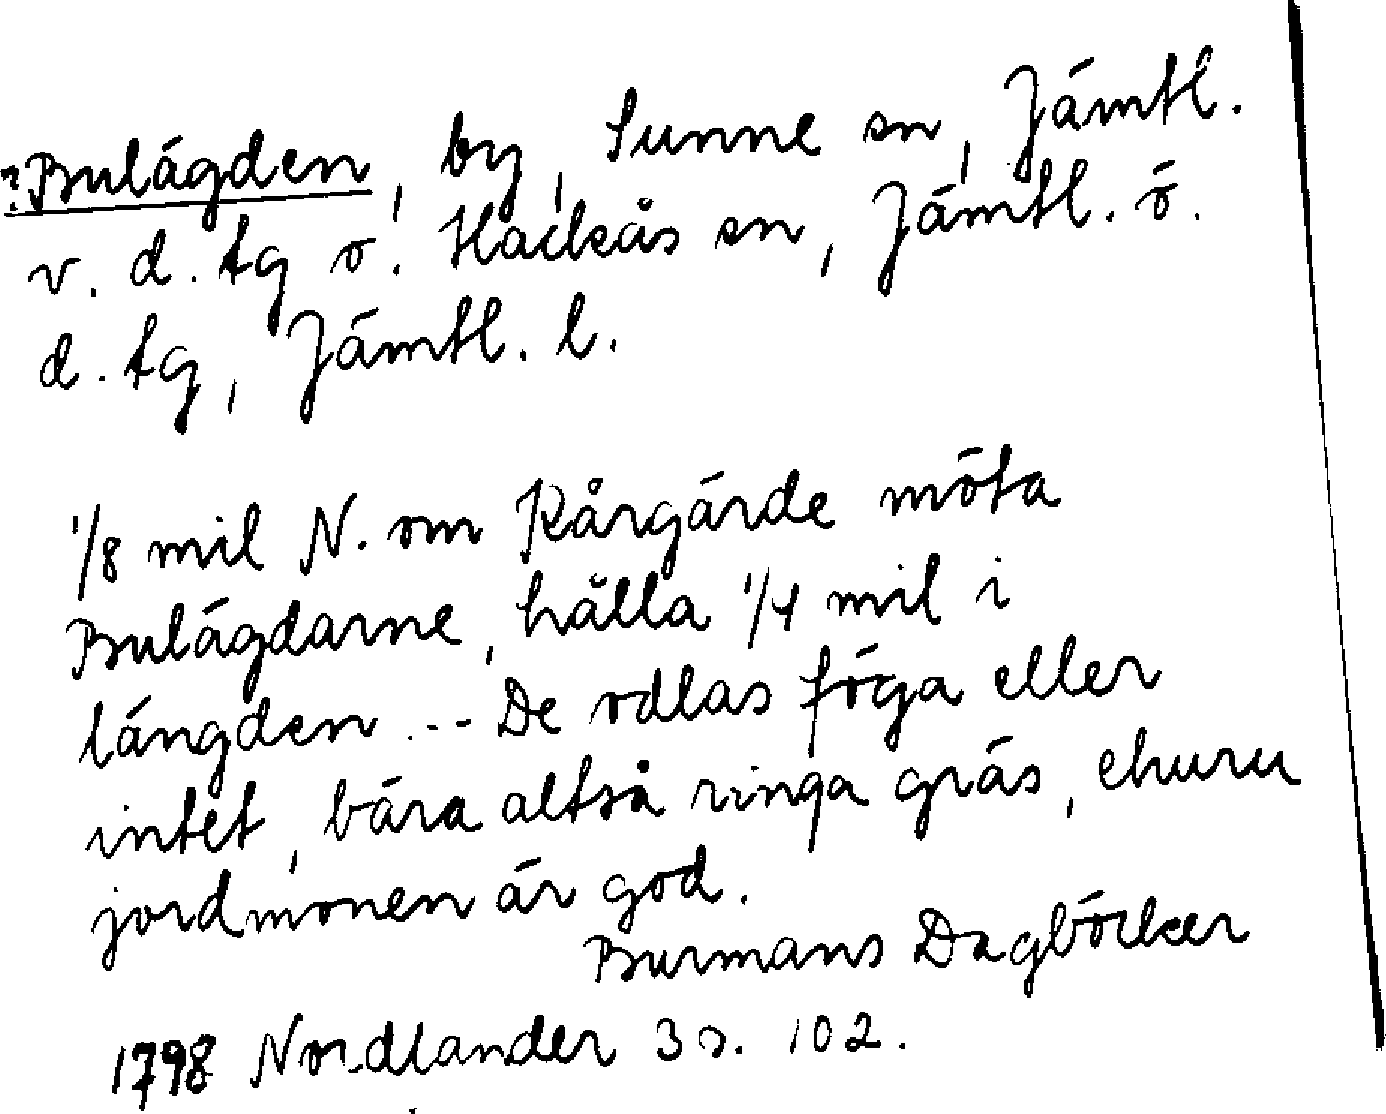 ?Bulägden, by, Sunne sn, Jämtl.
v. d. tg o. Hackås sn, Jämtl. ö.
d. tg, Jämtl. l.
1/8 mil N. om Kårgärde möta
Bulägdarne, hålla 1/4 mil i
längden ... De odlas föga eller
intet, bära altså ringa gräs, ehuru
jordmonen är god.
Burmans Dagböcker
1798 Nordlander 3 s. 102.